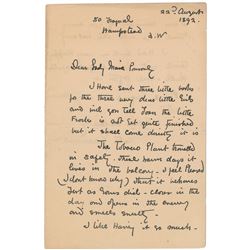 22nd August
1892.
50 Frognal
Hampstead
N.W
Dear Lady Maria
I have sent three little books
for the three very dear little Girls
and will you tell Joan the little
Frock is not yet quite finished
but it shall come directly it is
The Tobacco Plant travelled
in safely. These warm days it
lives in the balcony. I feel pleased
(I dont know why) that it behaves
just as yours did - closes in the
day and opens in the evening
and smells sweetly.
I like having it so much.